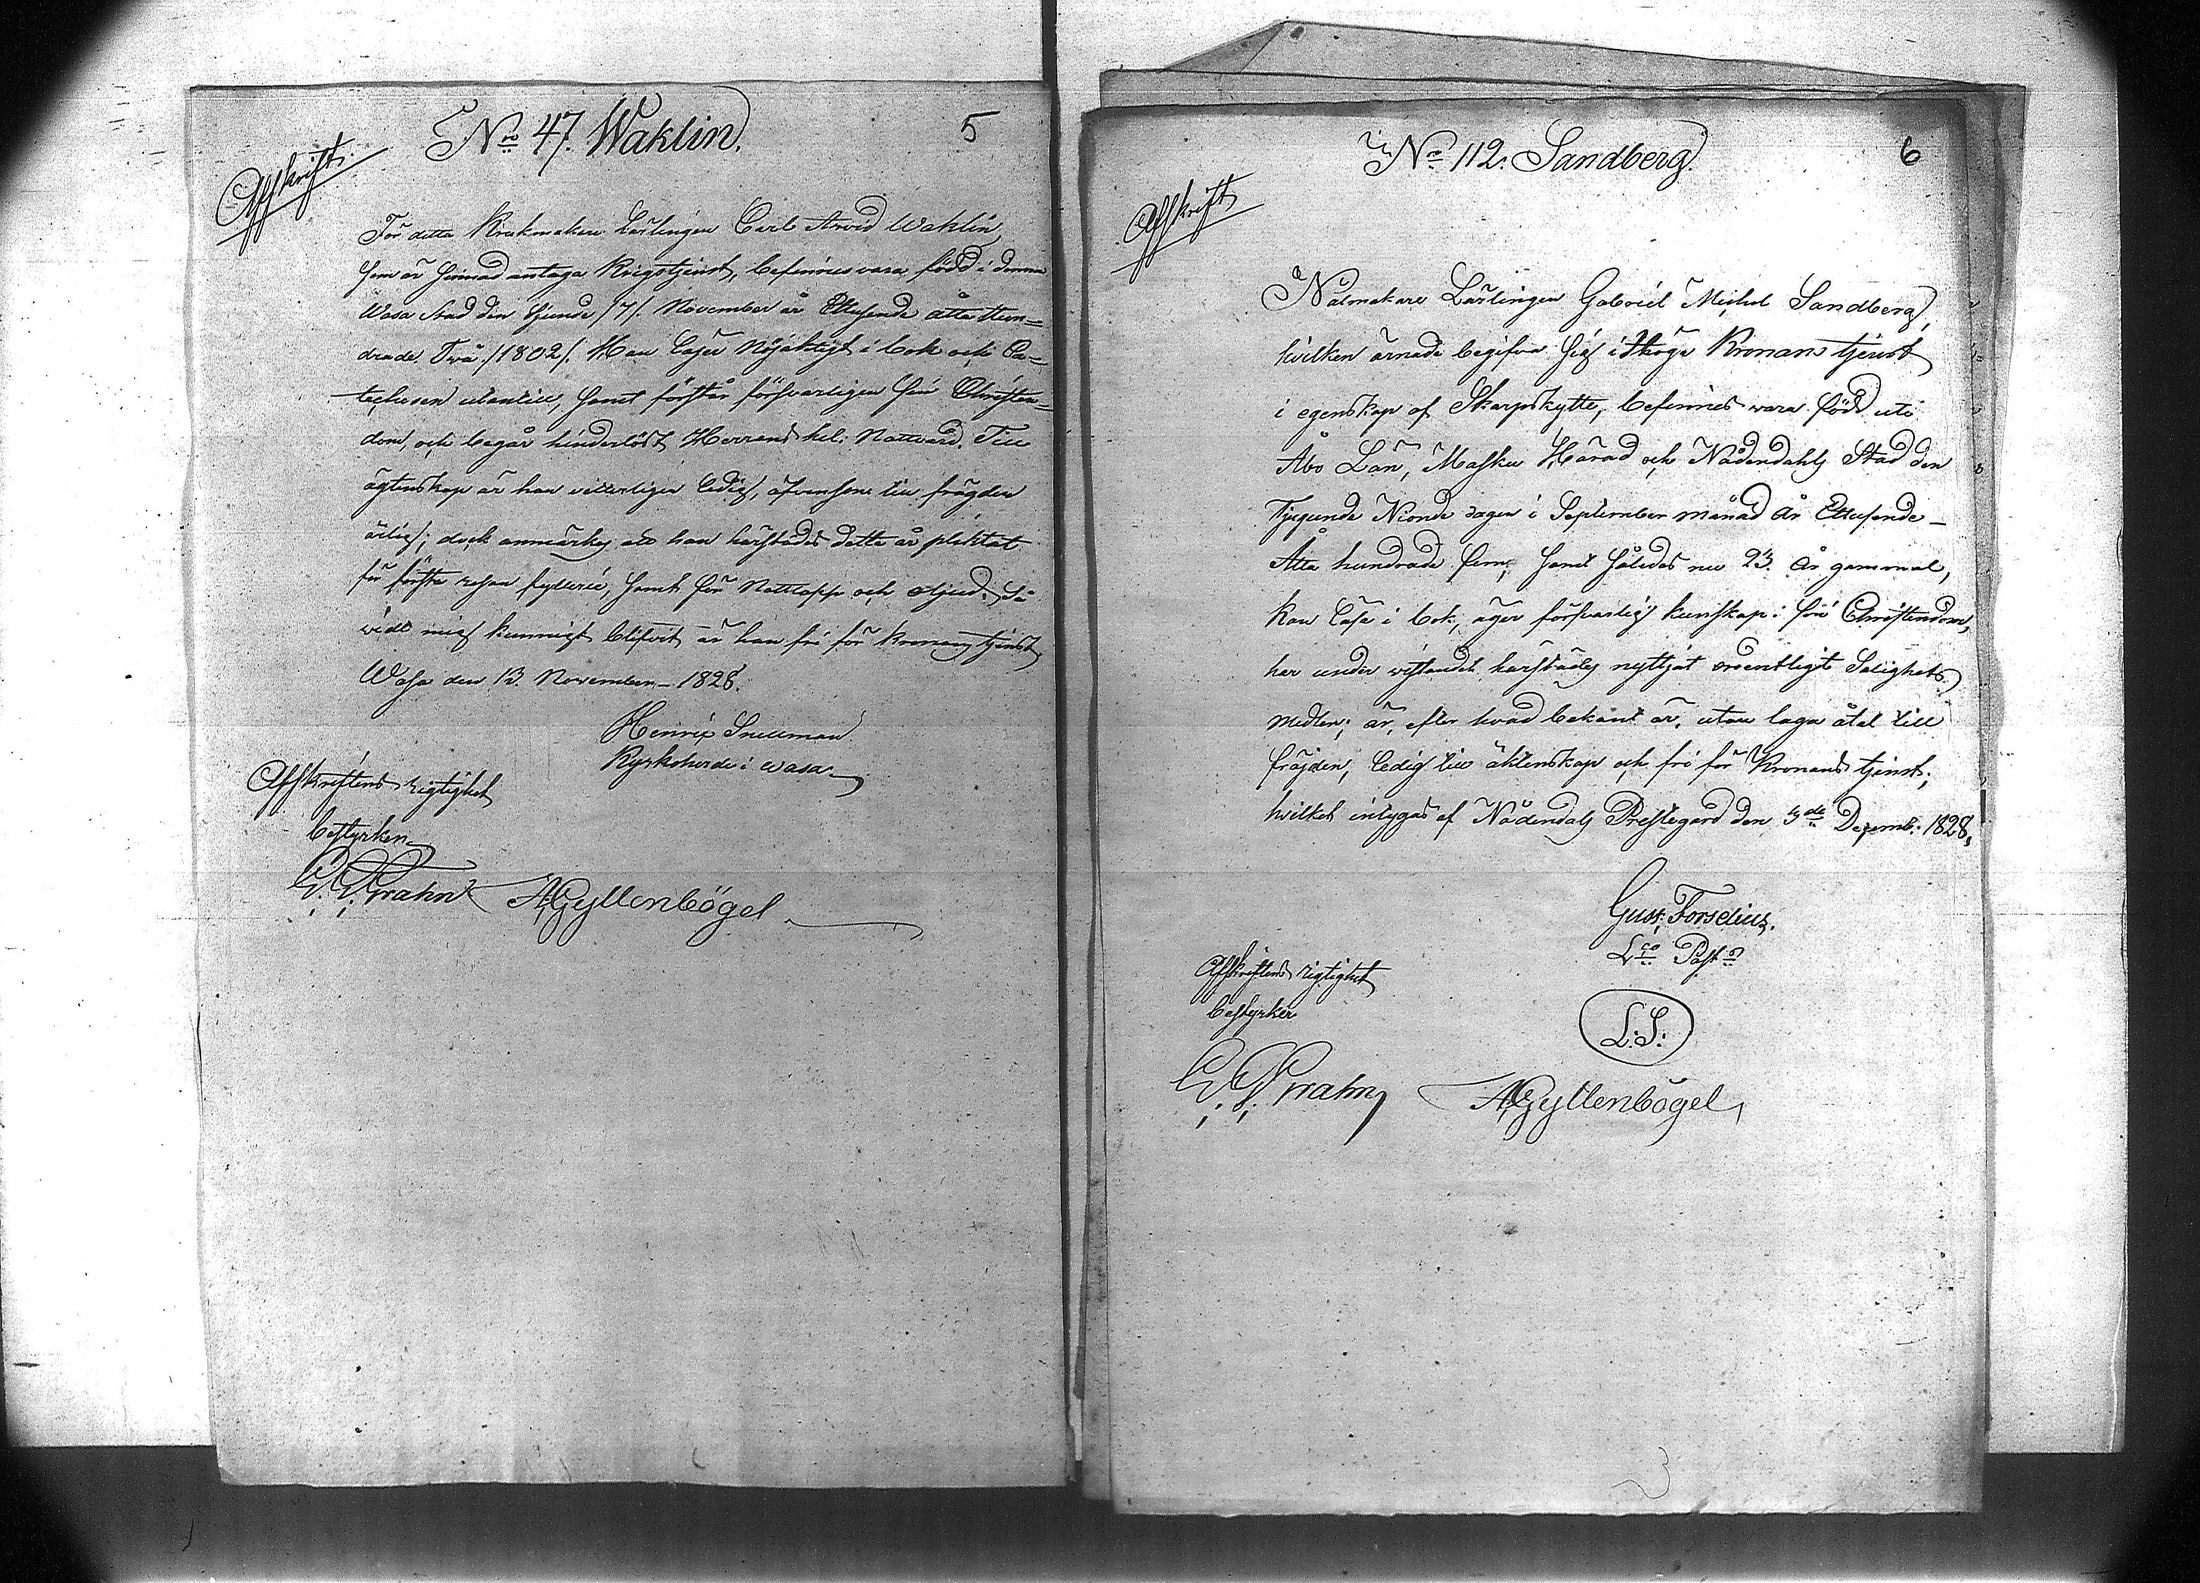 5
No 47. Waklin.
Affskrift.
För detta Krukmakare Lärlingen Carl Arvid Waklin
som är sinnad antaga Krigstjenst, befinnes vara född i denna
Wasa Stad den Sjunde /7/. November år Ettusende åtta Hun=
drade Två /1802/. Han läser Nöjaktigt i bok och Ca=
techesen utantill, samt förstår försvarligen sin Christen=
dom, och begår hinderlöst Herrans hel: Nattvard. Till
ägtenskap är han vitterligen ledig, äfvensom till frägden
ärlig; dock anmärkes att han härstädes detta år pliktat
för första resan fylleri, samt för Nattlopp och oljud. Så
vidt mig kunnigt blifvit är han fri för Kronans tjenst.
Wasa den 13. November 1828.
Henric Snellman
Kyrkoherde i Wasa
Affskriftens rigtighet
bestyrken
G. G. Prahn AGyllenbögel
6
No 112. Sandberg.
Affskrift
Nålmakare Lärlingen Gabriel Michel Sandberg,
hvilken ärnade begifva sig i Höga Kronans tjenst
i egenskap af Skarpskytte, befinnes vara född uti
Åbo Län, Masku Härad och Nådendahls Stad den
Tjugunde Nionde dagen i September månad år Ettusende
Åtta hundrade fem, samt således nu 23. år gammal,
kan läsa i bok, äger försvarlig kunskap i sin Christendom,
har under vistandet härstädes nyttjat ordentligt Salighets
medlen; är, efter hvad bekant är, utan laga åtal till
fräjden, ledig till äktenskap och fri för Kronans tjenst;
hvilket intygas af Nådendals Prestegård den 5de Decemb. 1828.
Gust. Forselius.
Lco Past
L. S.
Affskriftens rigtighet
bestyrker
G. G. Prahn AGyllenbögel